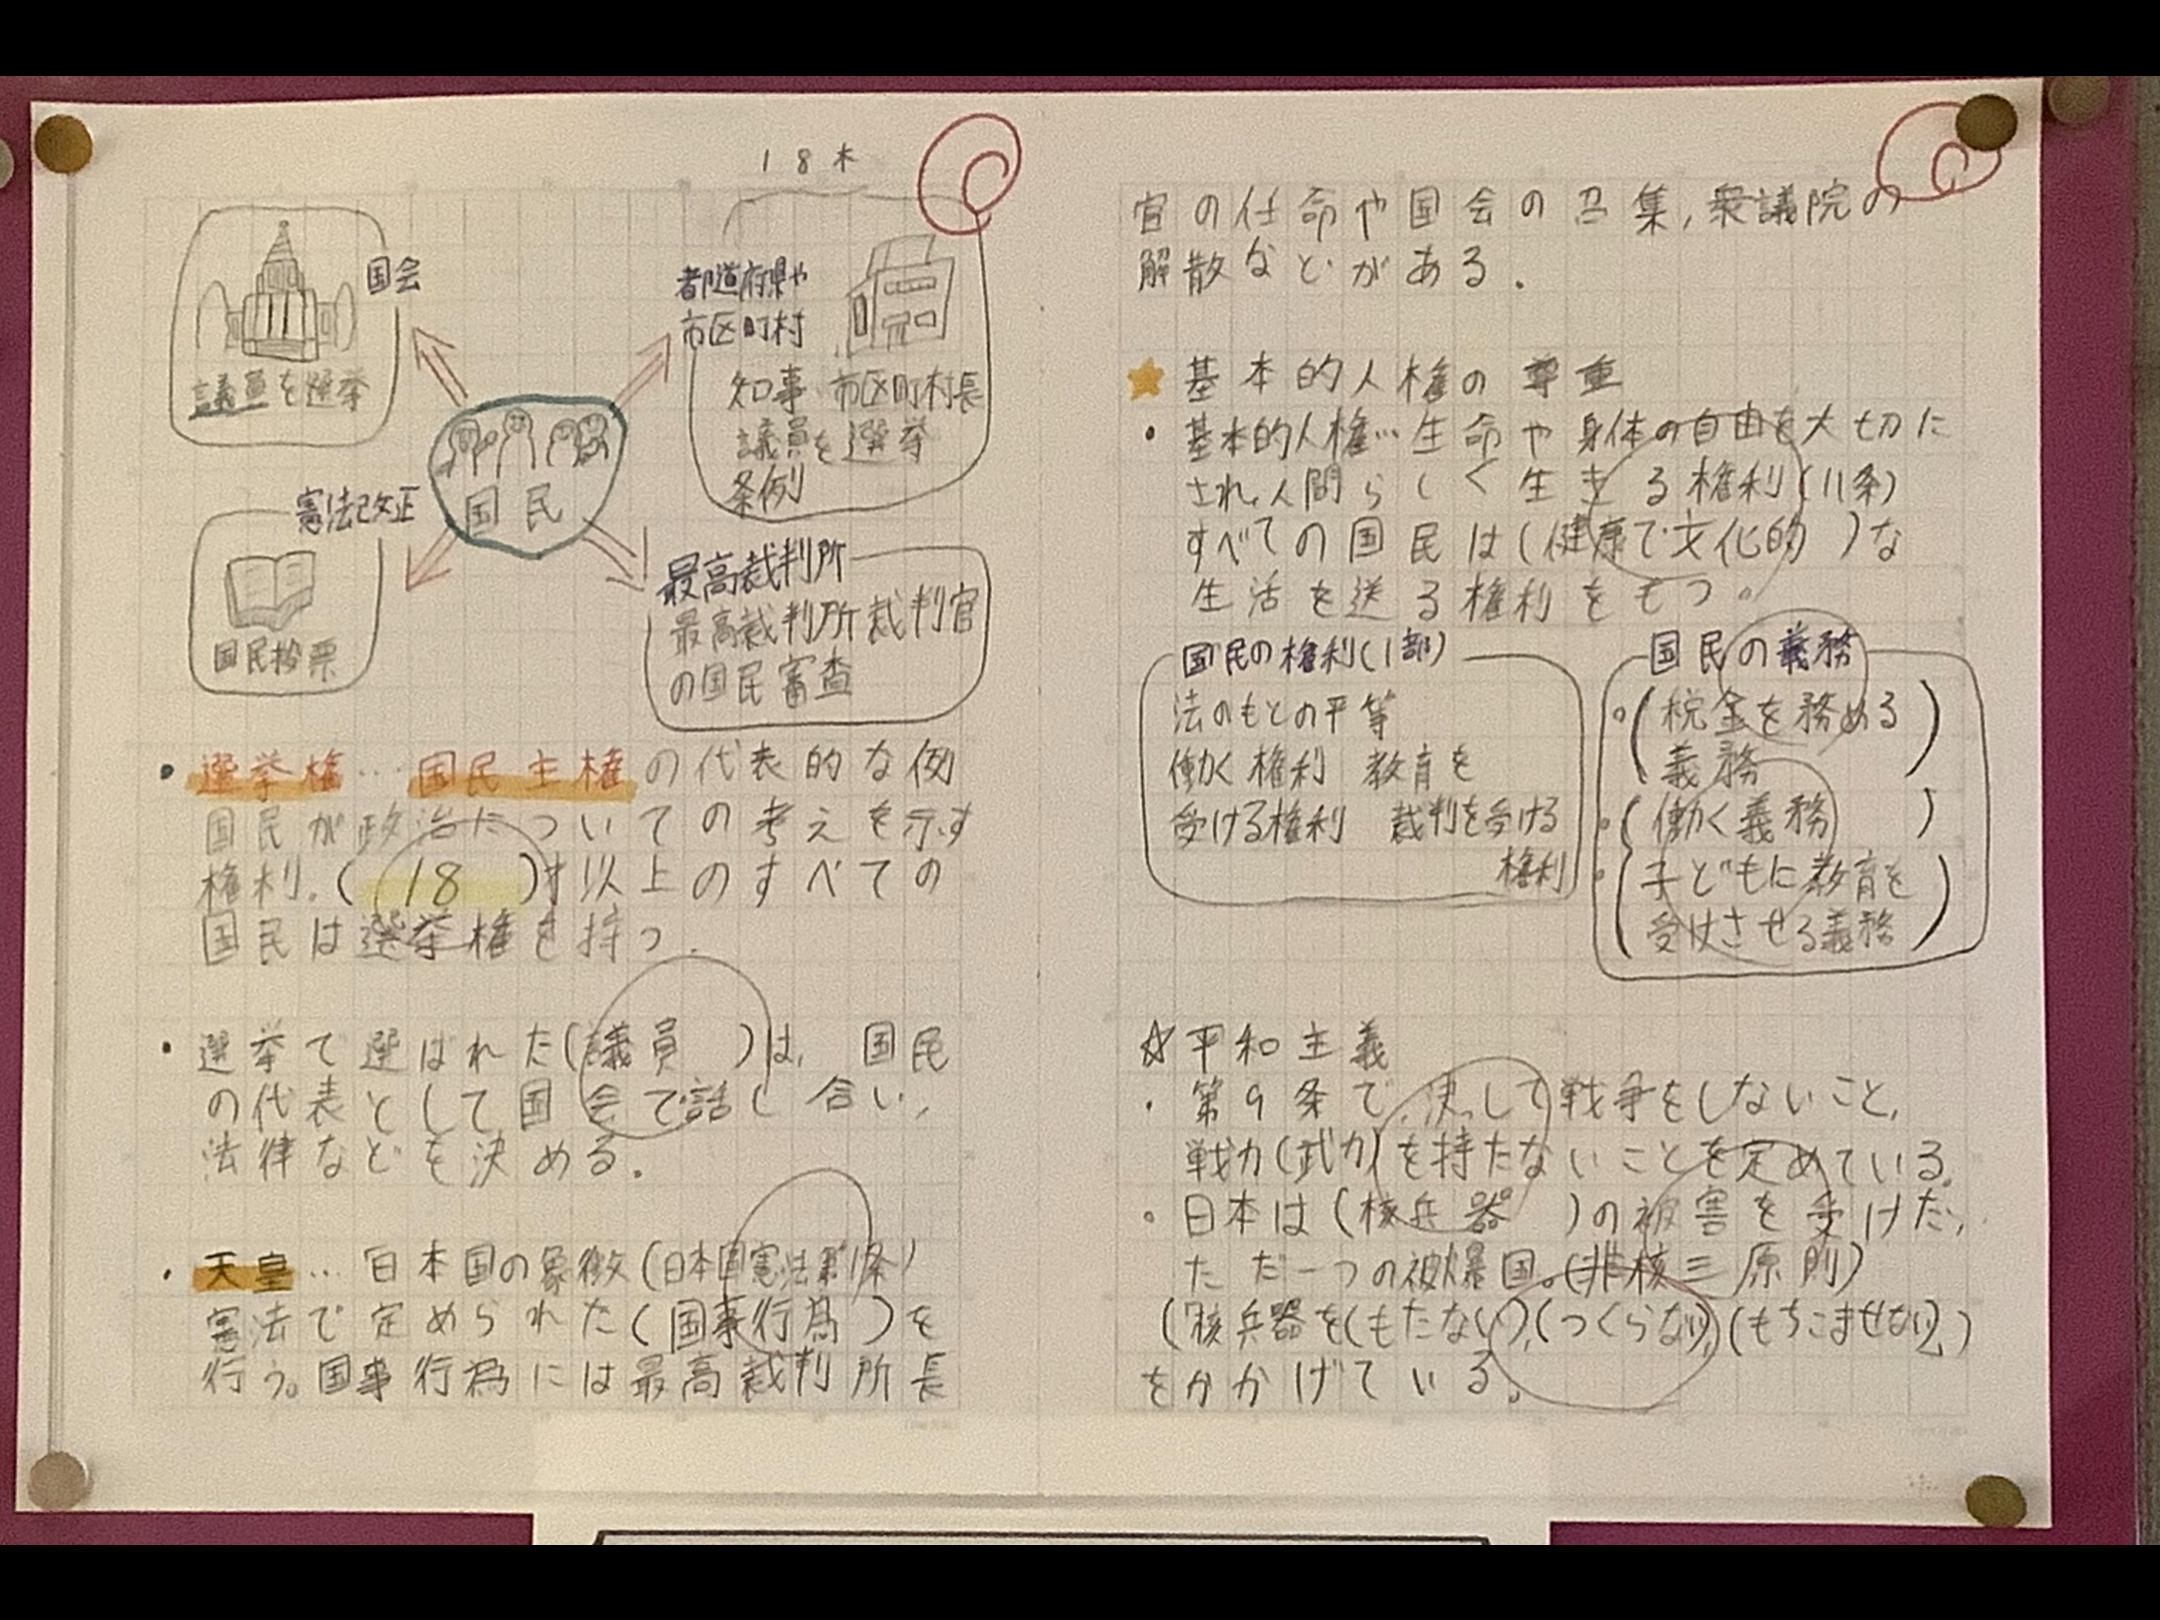 18木
国会
議員を選挙
都道府県や
市区町村
知事 市区町村長
議員を選挙
条例
国民
憲法改正
国民投票
最高裁判所
最高裁判所裁判官
の国民審査
・選挙権…国民主権の代表的な例
国民が政治についての考えを示す
権利.(18)才以上のすべての
国民は選挙権を持つ.
・選挙で選ばれた(議員)は,国民
の代表として国会で話し合い,
法律などを決める.
・天皇…日本国の象徴(日本国憲法第1条)
憲法で定められた(国事行為)を
行う。国事行為には最高裁判所長
官の任命や国会の召集,衆議院の
解散などがある.
★基本的人権の尊重
・基本的人権…生命や身体の自由を大切に
され,人間らしく生きる権利(11条)
すべての国民は(健康で文化的)な
生活を送る権利をもつ。
国民の権利(1部)
法のもとの平等
働く権利 教育を
受ける権利 裁判を受ける
権利
国民の義務
・(税金を務める
義務)
・(働く義務)
・(子どもに教育を
受けさせる義務)
☆平和主義
・第9条で,決して戦争をしないこと,
戦力(武力)を持たないことを定めている。
・日本は(核兵器)の被害を受けた,
ただ一つの被爆国。(非核三原則)
(「核兵器を(もたない),(つくらない),(もちこませない)」)
をかかげている。